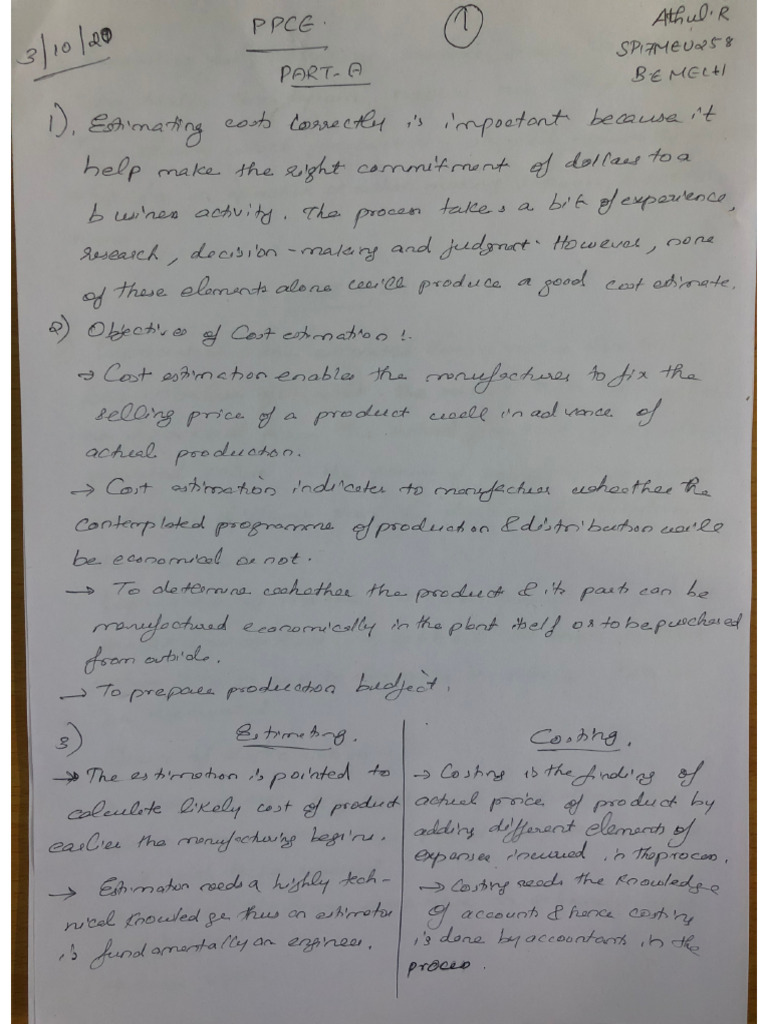 3/10/20
PPCE.
1
Athul.R
SP17MEU258
BE MECH
PART-A
1). Estimating costs correctly is important because it
help make the right commitment of dollars to a
business activity. The process takes a bit of experience,
research, decision-making and judgment. However, none
of these elements alone will produce a good cost estimate.
2) Objectives of Cost estimation :.
→ Cost estimation enables the manufacturer to fix the
selling price of a product well in advance of
actual production.
→ Cost estimation indicates to manufacturer whether the
contemplated programme of production & distribution will
be economical or not.
→ To determine whether the product & its parts can be
manufactured economically in the plant itself or to be purchased
from outside.
→ To prepare production budject.
3) Estimating.
→ The estimation is pointed to
calculate likely cost of product
earlier the manufacturing begins.
→ Estimator needs a highly tech-
nical knowledge thus an estimator
is fundamentally an engineer.
Costing.
→ Costing is the finding of
actual price of product by
adding different elements of
expenses incurred in the process.
→ Costing needs the knowledge
of accounts & hence costing
is done by accountants in the
process.